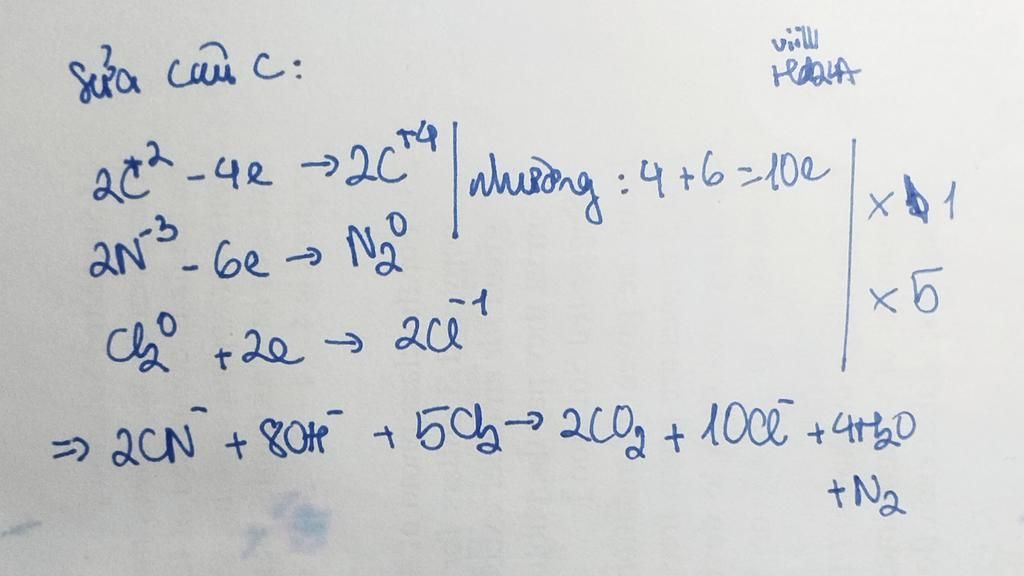 Sửa câu C:
2C⁺² - 4e → 2C⁺⁴ | nhường : 4 + 6 = 10e | × 1
2N⁻³ - 6e → N₂⁰
× 5
Cl₂⁰ + 2e → 2Cl⁻¹
⇒ 2CN⁻ + 8OH⁻ + 5Cl₂ → 2CO₂ + 10Cl⁻ + 4H₂O
+ N₂